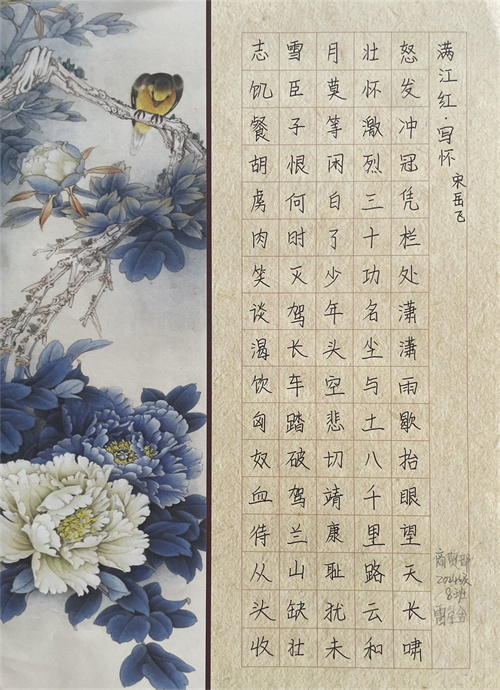 满江红·写怀
宋岳飞
怒发冲冠凭栏处潇潇雨歇抬眼望天长啸
壮怀激烈三十功名尘与土八千里路云和
月莫等闲白了少年头空悲切靖康耻犹未
雪臣子恨何时灭驾长车踏破驾兰山缺壮
志饥餐胡虏肉笑谈渴饮匈奴血待从头收
商贸部
2024级
8班